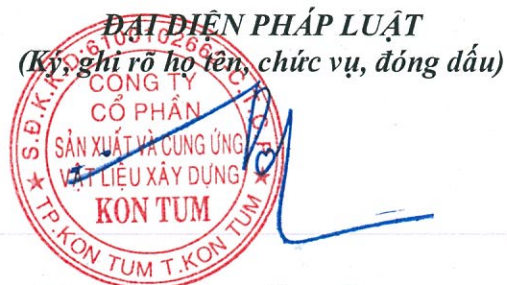 ĐẠI DIỆN PHÁP LUẬT
(Ký, ghi rõ họ tên, chức vụ, đóng dấu)
CÔNG TY
CỔ PHẦN
SẢN XUẤT VÀ CUNG ỨNG
VẬT LIỆU XÂY DỰNG
KON TUM
TP.KON TUM T.KON TUM